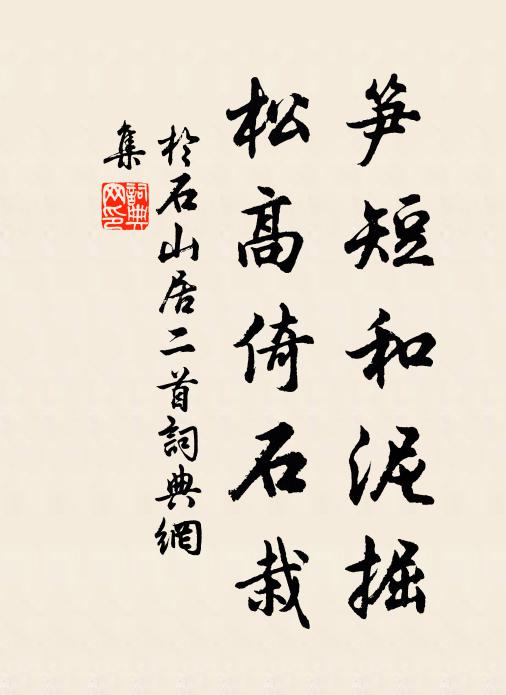 笋短和泥掘
松高倚石栽
於石山居二首詞典網
集
詞典网印